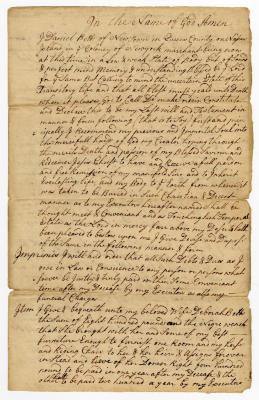 In the Name of God Amen
I Daniel Betts of New Town in Queens County on Nassau
Island in ye Colony of New york marchant being now
at this time in a Low & weak State of Body but of sound
& perfect mind Memory & understanding
for ye Same But Calling to mind the uncertain State of this
Transitory Life and that all flesh must yeald unto Death
when it please god to Call Do make
and Declare this to be my Last Will and Testament in
manner & form following that is to say first and prin
cipally I Recommend my precious and Immortal Soul into
the mercifull hands of God my Creator hoping through
the merits Death and passion of my Blessed Saviour and
Redeemer Jesus Christ to have and Receive a full pardon and
free Remission of my manifold Sins and to Inherit
Everlasting life and my Body to ye Earth from whence it
was taken to be Buried in Such Christian & Decent
manner as to my Executors hereafter named shall be
thought meet & Convenient and as Touching such Temporal
Estate as the Lord in mercy far above my Deserts hath
been pleased to bestow upon me I give Devise and Dispose
of the Same in the following manner & form
Imprimis I will and order that all those Debts & Dues as I
owe in Law or Conscience to any person or persons what
soever be Justly & truly paid in Some Convenient
time after my Decease by my Executors as also my
funeral Charge
Item I Give & Bequeath unto my Beloved Wife Deborah Betts
the Sum of Eight hundred pounds and the negro wench
that She brought with her and Some of my best
furniture Enough to furnish one Room and my
and Riding Chair to her & her heirs & Assigns forever
Eight four hundred
pounds to be paid in one year after my Decease & the
other to be paid two hundred a year by my Executors